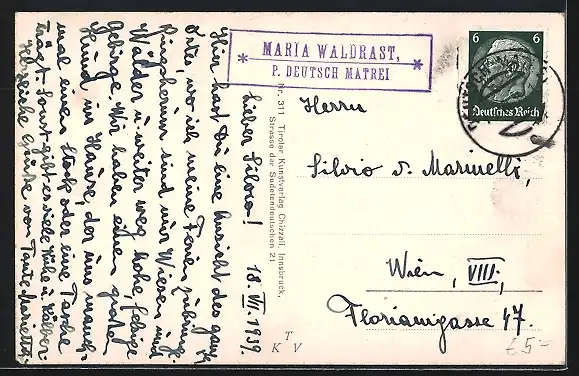 MARIA WALDRAST,
P. DEUTSCH MATREI
6 6
Deutsches Reich
Lieber Silvio! 18. VI. 1939.
Hier hast Du eine Ansicht des ganzen
Ortes, wo ich meine Ferien zubringe.
Ringsherum sind nur Wiesen und
Wälder u. weiter weg hohe, felsige
Gebirge. Wir haben einen großen
Hund im Hause, der uns manch-
mal einen Stock oder eine Tasche
trägt. Sonst gibt es viele Kühe u. Kälber.
Herzliche Grüße von Tante Marietta.
Nr. 311 Tiroler Kunstverlag Chizzali, Innsbruck,
Strasse der Sudetendeutschen 21
K T V
Herrn
Silvio v. Marinelli,
Wien, VIII;
Floriangasse 47.
£5-